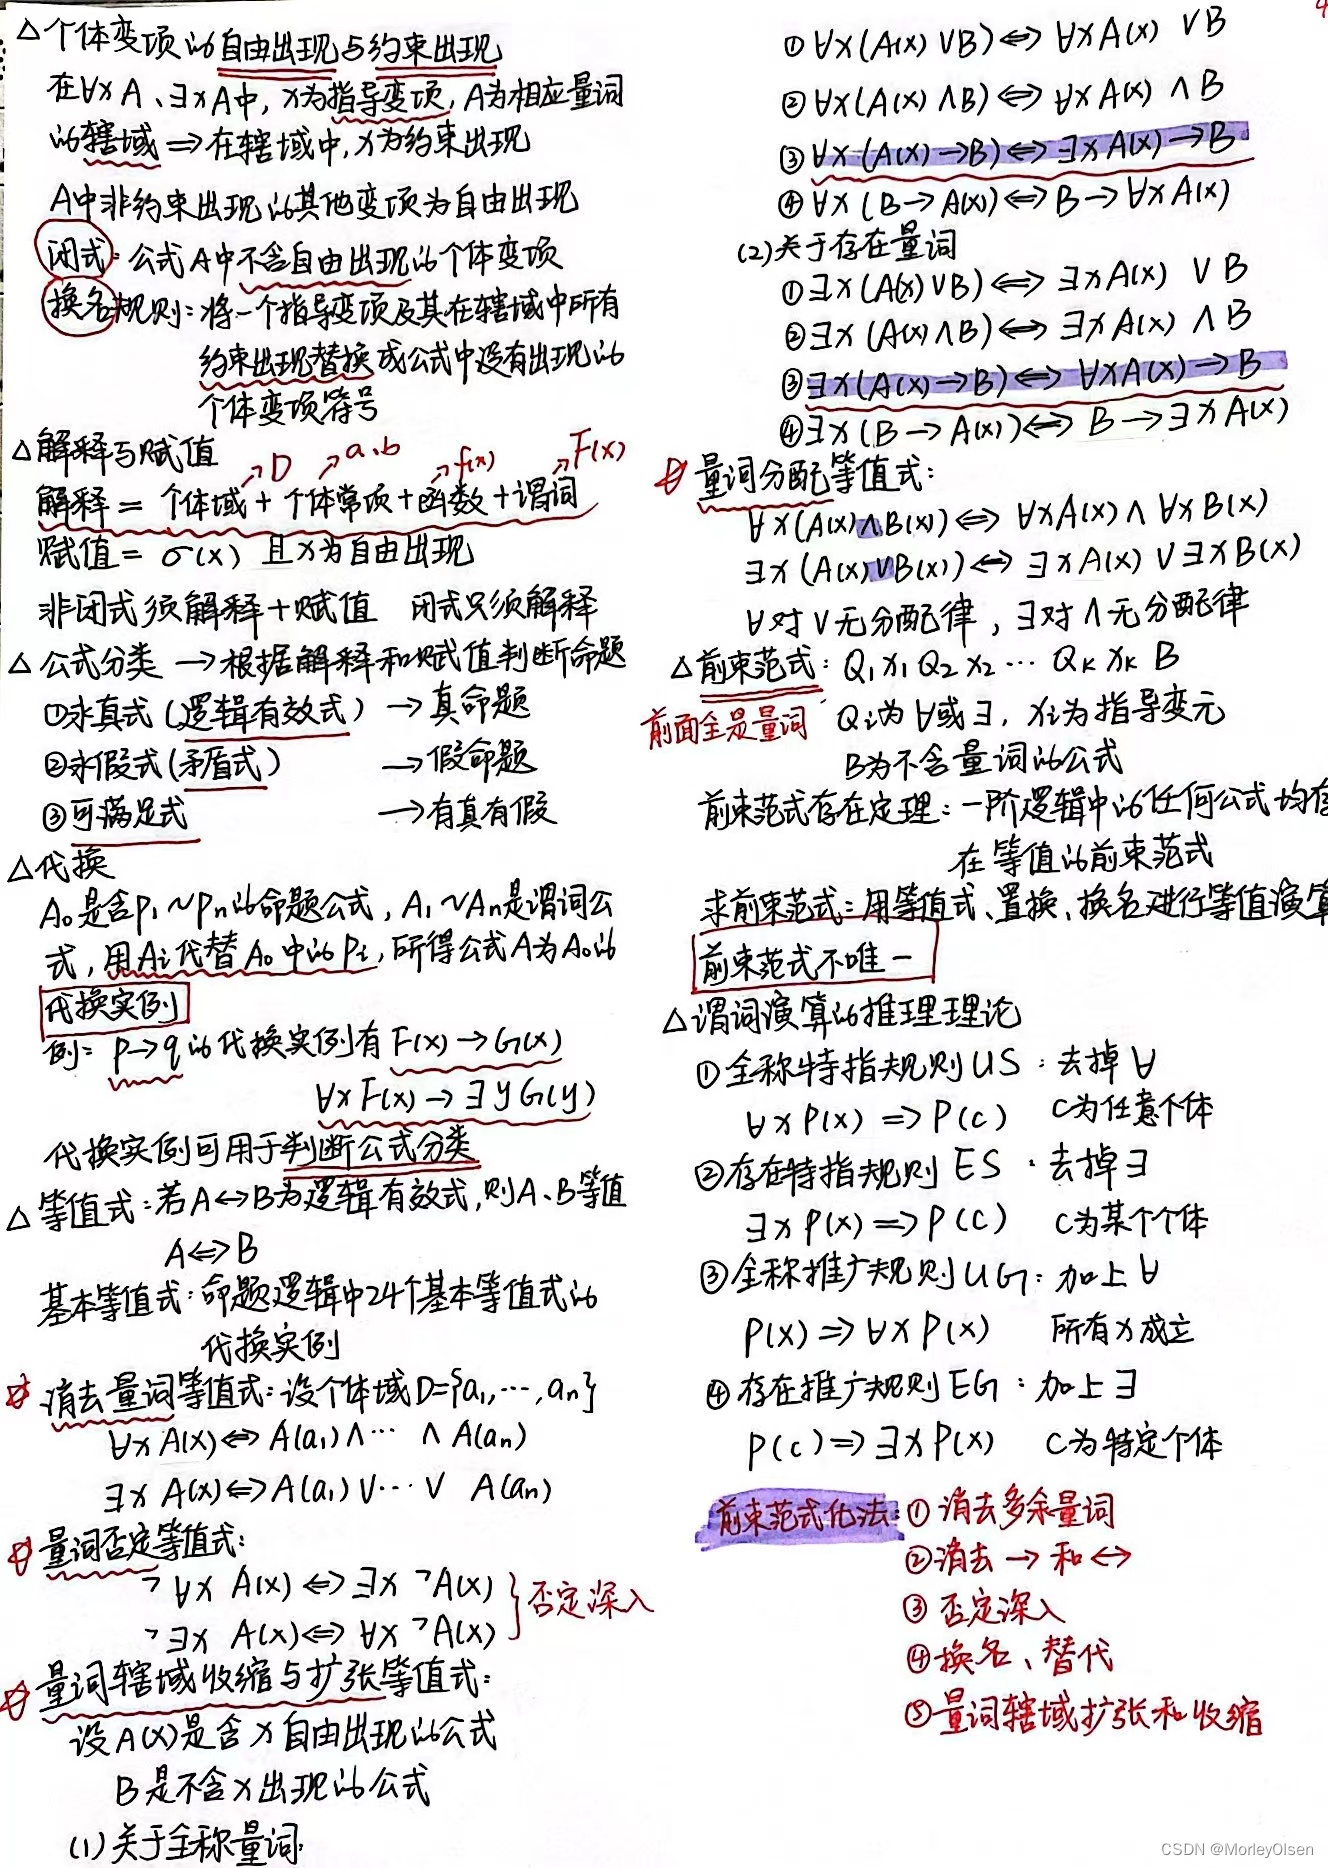 △个体变项的自由出现与约束出现
在∀xA、∃xA中,x为指导变项,A为相应量词
的辖域 ⇒在辖域中,x为约束出现
A中非约束出现的其他变项为自由出现
闭式:公式A中不含自由出现的个体变项
换名规则:将一个指导变项及其在辖域中所有
约束出现替换成公式中没有出现的
个体变项符号
△解释与赋值
↗D ↗a.b ↗f(x) ↗F(x)
解释= 个体域+个体常项+函数+谓词
赋值= σ(x) 且x为自由出现
非闭式须解释+赋值 闭式只须解释
△公式分类 →根据解释和赋值判断命题
①永真式(逻辑有效式) →真命题
②永假式(矛盾式) →假命题
③可满足式 →有真有假
△代换
A₀是含p₁~pn的命题公式,A₁~An是谓词公
式,用Ai代替A₀中的Pi,所得公式A为A₀的
代换实例
例: p→q的代换实例有F(x)→G(x)
∀xF(x)→∃yG(y)
代换实例可用于判断公式分类
△等值式:若A↔B为逻辑有效式,则A、B等值
A⇔B
基本等值式:命题逻辑中24个基本等值式的
代换实例
☆消去量词等值式:设个体域D={a₁,…,an}
∀xA(x)⇔A(a₁)∧… ∧A(an)
∃x A(x)⇔A(a₁)∨…∨ A(an)
☆量词否定等值式:
¬∀x A(x)⇔∃x¬A(x)
¬∃x A(x)⇔∀x¬A(x) }否定深入
☆量词辖域收缩与扩张等值式:
设A(x)是含x自由出现的公式
B是不含x出现的公式
(1)关于全称量词
4
①∀x(A(x)∨B)⇔∀xA(x) ∨B
②∀x(A(x)∧B)⇔∀xA(x) ∧B
③∀x(A(x)→B)⇔∃xA(x)→B
④∀x(B→A(x))⇔B→∀xA(x)
(2)关于存在量词
①∃x(A(x)∨B)⇔∃xA(x) ∨B
②∃x(A(x)∧B)⇔∃xA(x) ∧B
③∃x(A(x)→B)⇔∀xA(x)→B
④∃x(B→A(x))⇔B→∃xA(x)
☆量词分配等值式:
∀x(A(x)∧B(x))⇔∀xA(x)∧∀xB(x)
∃x(A(x)∨B(x))⇔∃xA(x)∨∃xB(x)
∀对∨无分配律,∃对∧无分配律
△前束范式: Q₁x₁Q₂x₂… QkxkB
前面全是量词 Qi为∀或∃,xi为指导变元
B为不含量词的公式
前束范式存在定理:一阶逻辑中的任何公式均存
在等值的前束范式
求前束范式:用等值式、置换、换名进行等值演算
前束范式不唯一
△谓词演算的推理理论
①全称特指规则US:去掉∀
∀xP(x)⇒P(c) C为任意个体
②存在特指规则 ES :去掉∃
∃xP(x)⇒P(c) C为某个个体
③全称推广规则UG:加上∀
P(x)⇒∀xP(x) 所有x成立
④存在推广规则EG:加上∃
P(c)⇒∃xP(x) C为特定个体
前束范式化法:①消去多余量词
②消去→和↔
③否定深入
④换名、替代
⑤量词辖域扩张和收缩
CSDN @MorleyOlsen